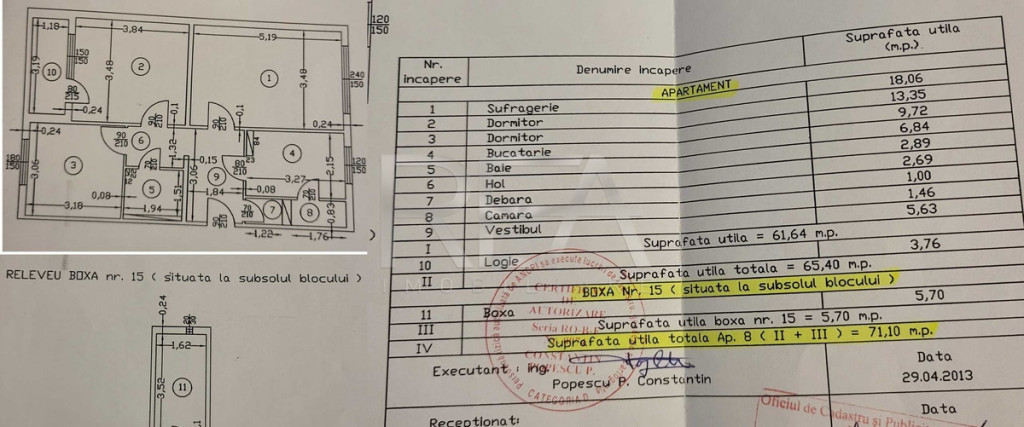 1,18
3,84
5,19
3,19
150
150
10
3,48
2
1
3,48
240
150
80
215
0,24
0,1
0,1
0,24
90
210
90
210
0,24
6
1,32
180
150
3,06
3
70
210
0,15
90
210
84
23
4
2,15
120
150
9
3,06
3,27
0,08
5
1,51
1,84
0,08
70
210
3,18
1,94
90
210
70
210
7
8
0,83
1,22
1,76
120
150
RELEVEU BOXA nr. 15 ( situata la subsolul blocului )
0,24
80
30
1,62
3,52
11
Nr. incapere
Denumire incapere
Suprafata utila (m.p.)
APARTAMENT
1 Sufragerie 18,06
2 Dormitor 13,35
3 Dormitor 9,72
4 Bucatarie 6,84
5 Baie 2,89
6 Hol 2,69
7 Debara 1,00
8 Camara 1,46
9 Vestibul 5,63
I Suprafata utila = 61,64 m.p.
10 Logie 3,76
II Suprafata utila totala = 65,40 m.p.
BOXA Nr. 15 ( situata la subsolul blocului )
11 Boxa 5,70
III Suprafata utila boxa nr. 15 = 5,70 m.p.
IV Suprafata utila totala Ap. 8 ( II + III ) = 71,10 m.p.
Executant : ing.
Popescu P. Constantin
Data
29.04.2013
Receptionat:
Data
CERTIFICAT
DE
AUTORIZARE
CONSTANTIN
POPESCU P.
CATEGORIA D
Oficiul de Cadastru si